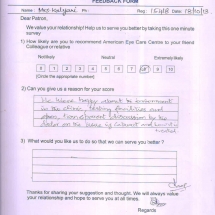 FEEDBACK FORM
Name: Mrs Kalyani M. Reg: 15468 Date: 18/10/13
Dear Patron,
We value your relationship! Help us to serve you better by taking this one minute
survey
1) How likely are you to recommend American Eye Care Centre to your Friend
Colleague or relative
Not likely Neutral Extremely likely
0 1 2 3 4 5 6 7 8 9 10
(Circle the appropriate number)
2) Can you give us a reason for your score
We were happy about the treatment
in the clinic, testing facilities and
open, transparent discussion by the
doctor on the issue of cataract and
3) What would you like us to do so that we can serve you better ?
Thanks for sharing your suggestion and thought. We will always value
your relationship and hope to serve you at all times.
Regards,